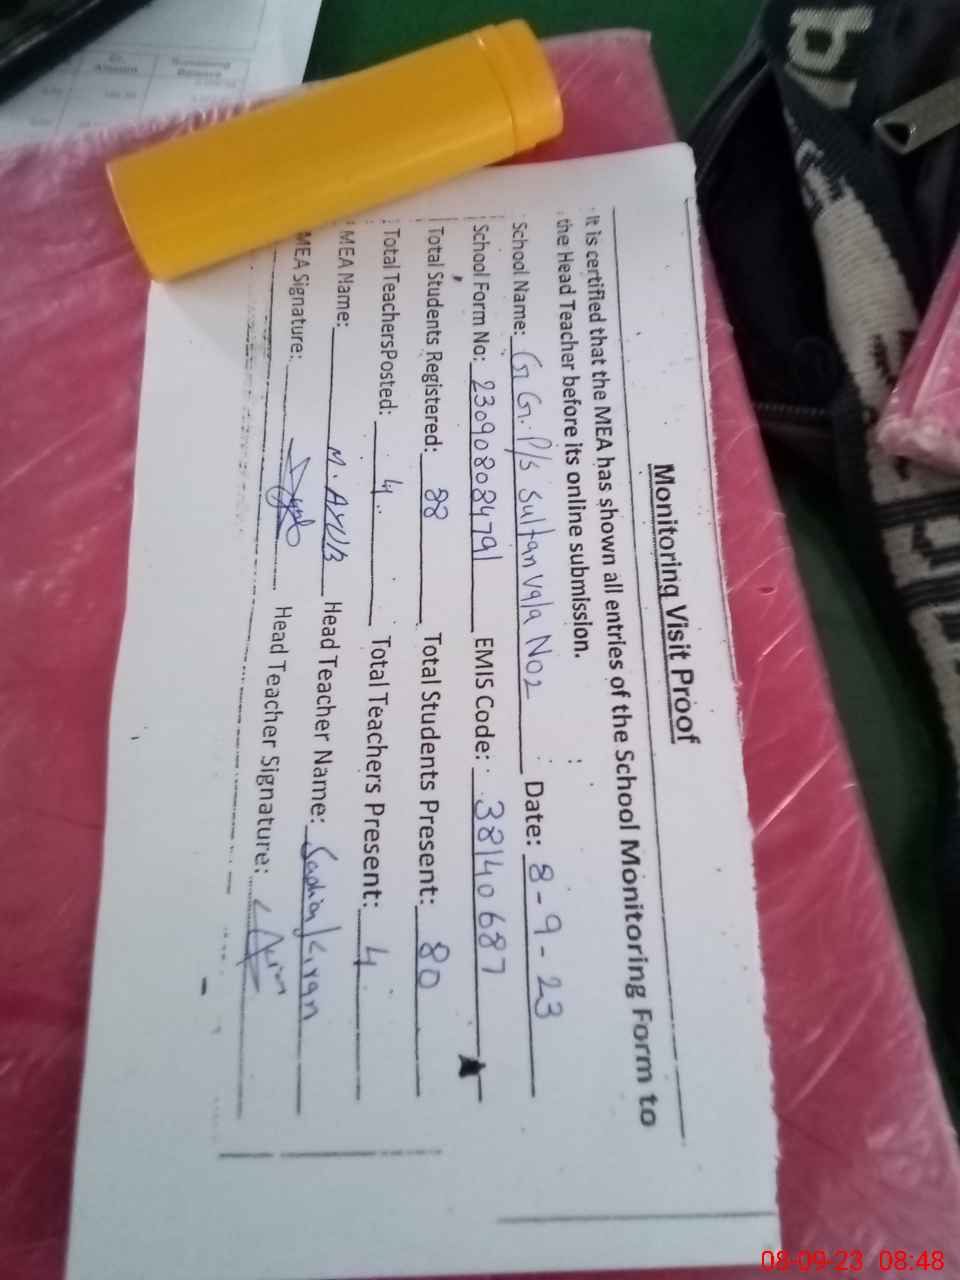 Monitoring Visit Proof
It is certified that the MEA has shown all entries of the School Monitoring Form to
the Head Teacher before its online submission.
School Name: G G. P/S Sultan Vala No2 Date: 8-9-23
School Form No: 230908084791 EMIS Code: 38140687
Total Students Registered: 88 Total Students Present: 80
Total TeachersPosted: 4 Total Teachers Present: 4
MEA Name: M. AYUB Head Teacher Name: Kiran
MEA Signature: Head Teacher Signature:
Amount
Balance
08-09-23 08:48